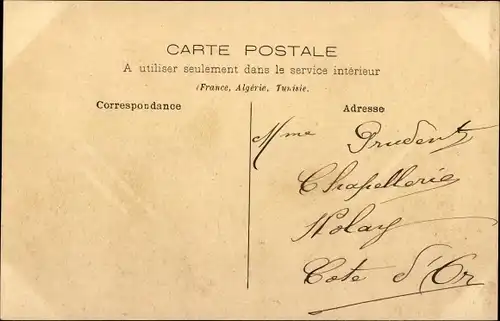 CARTE POSTALE
A utiliser seulement dans le service intérieur
(France, Algérie, Tunisie.
Correspondance
Adresse
Mme Prudent
Chapellerie
Nolay
Cote d'Or